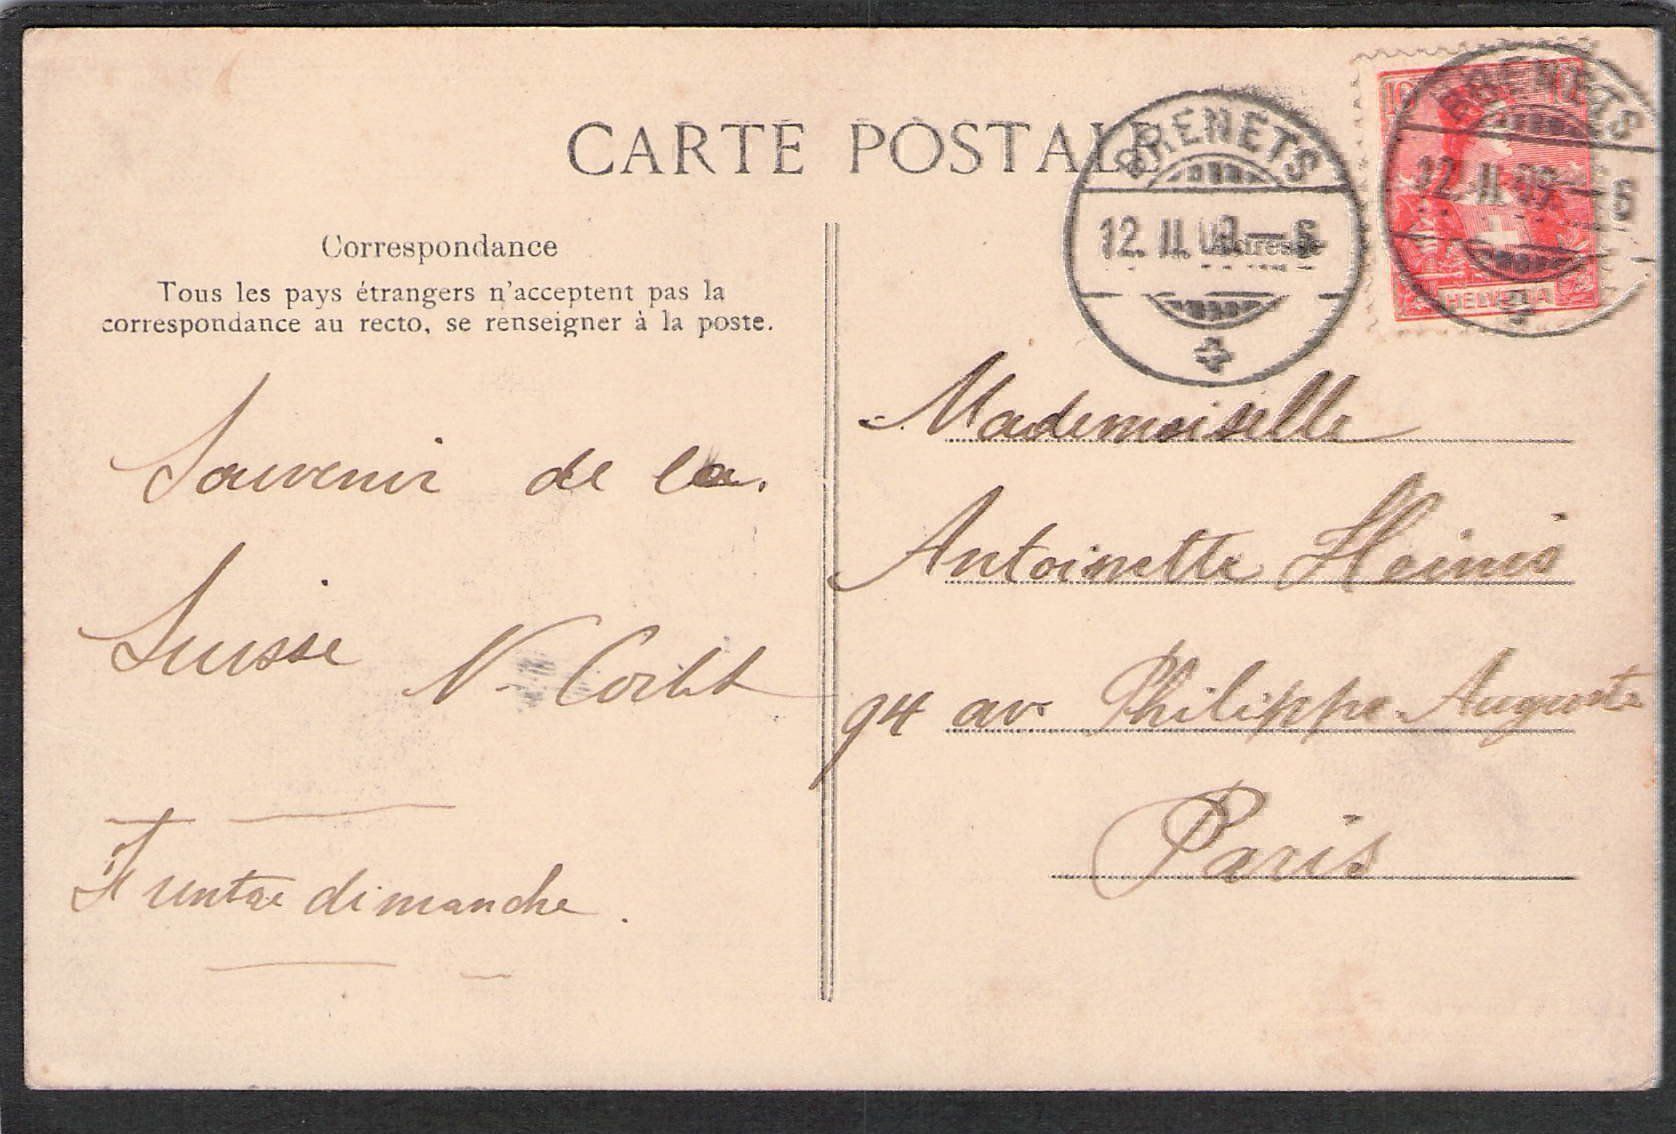 CARTE POSTALE
Correspondance
Tous les pays étrangers n'acceptent pas la
correspondance au recto, se renseigner à la poste.
Souvenir de la
Suisse N.
dimanche.
BRENETS
12.II.09.-6
Adresse
10
HELVETIA
BRENETS
12.II.09.-6
Mademoiselle
Antoinette Heinis
94 av. Philippe-Auguste
Paris